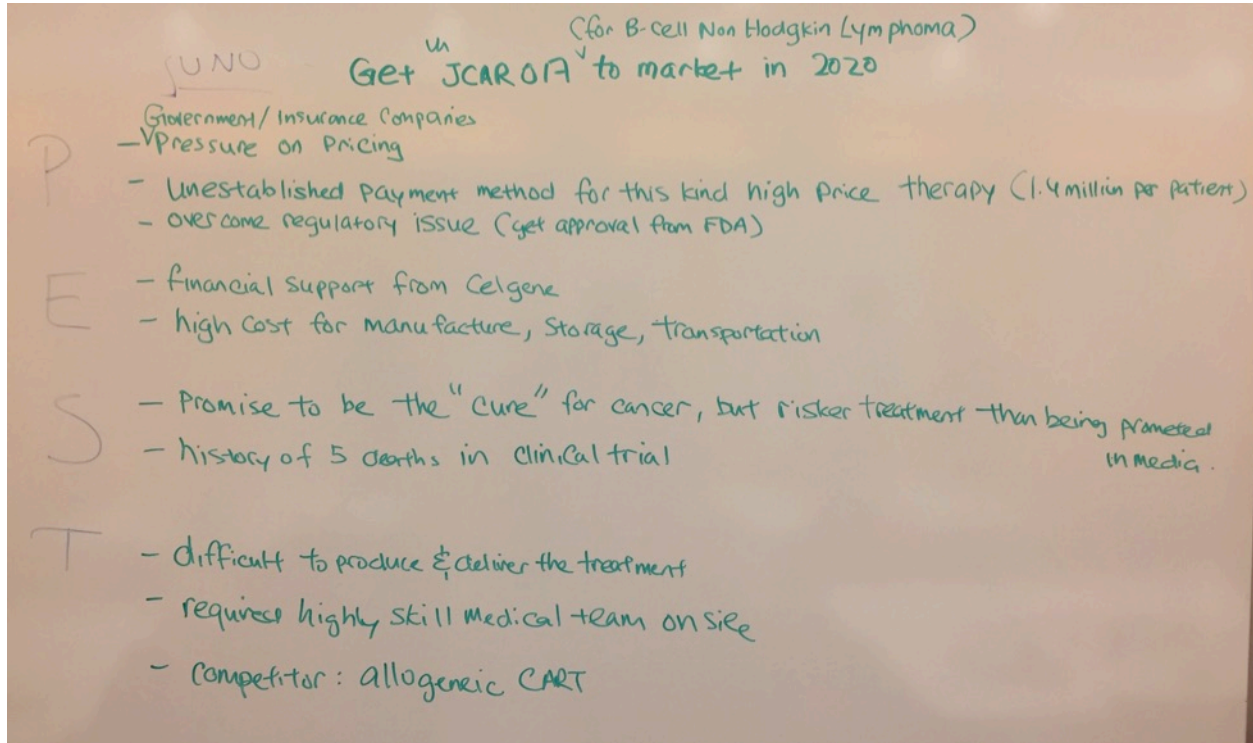 (for B-cell Non Hodgkin Lymphoma)
JUNO Get JCAR017 to market in 2020
Government/Insurance Companies
P - Pressure on Pricing
- Unestablished payment method for this kind high price therapy (1.4 million per patient)
- overcome regulatory issue (get approval from FDA)
E - financial support from Celgene
- high cost for manufacture, storage, transportation
S - Promise to be the "cure" for cancer, but risker treatment than being prometed
in media.
- history of 5 deaths in clinical trial
T - difficult to produce & deliver the treatment
- requires highly skill medical team on site
- Competitor: allogeneic CART